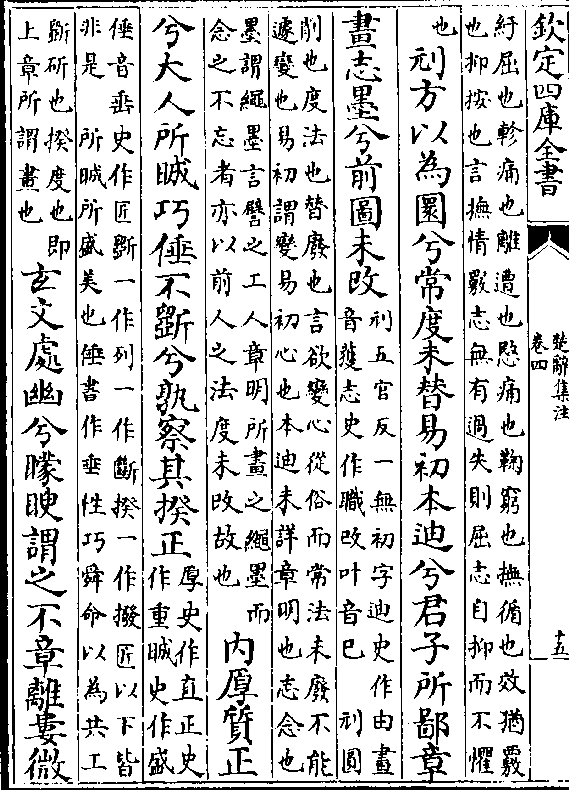 欽定四庫全書
楚辭集注
卷四
十五
紆屈也軫痛也離遭也慜痛也鞠窮也撫循也效猶覈
也抑按也言撫情覈志無有過失則屈志自抑而不懼
也
刓方以為圜兮常度未替易初本迪兮君子所鄙章
畫志墨兮前圖未改
刓五官反一無初字迪史作由畫
音獲志史作職改叶音已 刓圓
削也度法也替廢也言欲變心從俗而常法未廢不能
遽變也易初謂變易初心也本迪未詳章明也志念也
墨謂繩墨言譬之工人章明所畫之繩墨而
念之不忘者亦以前人之法度未改故也
內厚質正
兮大人所晠巧倕不斲兮孰察其揆正
厚史作直正史
作重晠史作盛
倕音垂史作匠斲一作列一作斷揆一作撥匠以下皆
非是 所晠所盛美也倕書作垂性巧舜命以為共工
斲斫也揆度也即
上章所謂畫也
玄文處幽兮矇瞍謂之不章離婁微